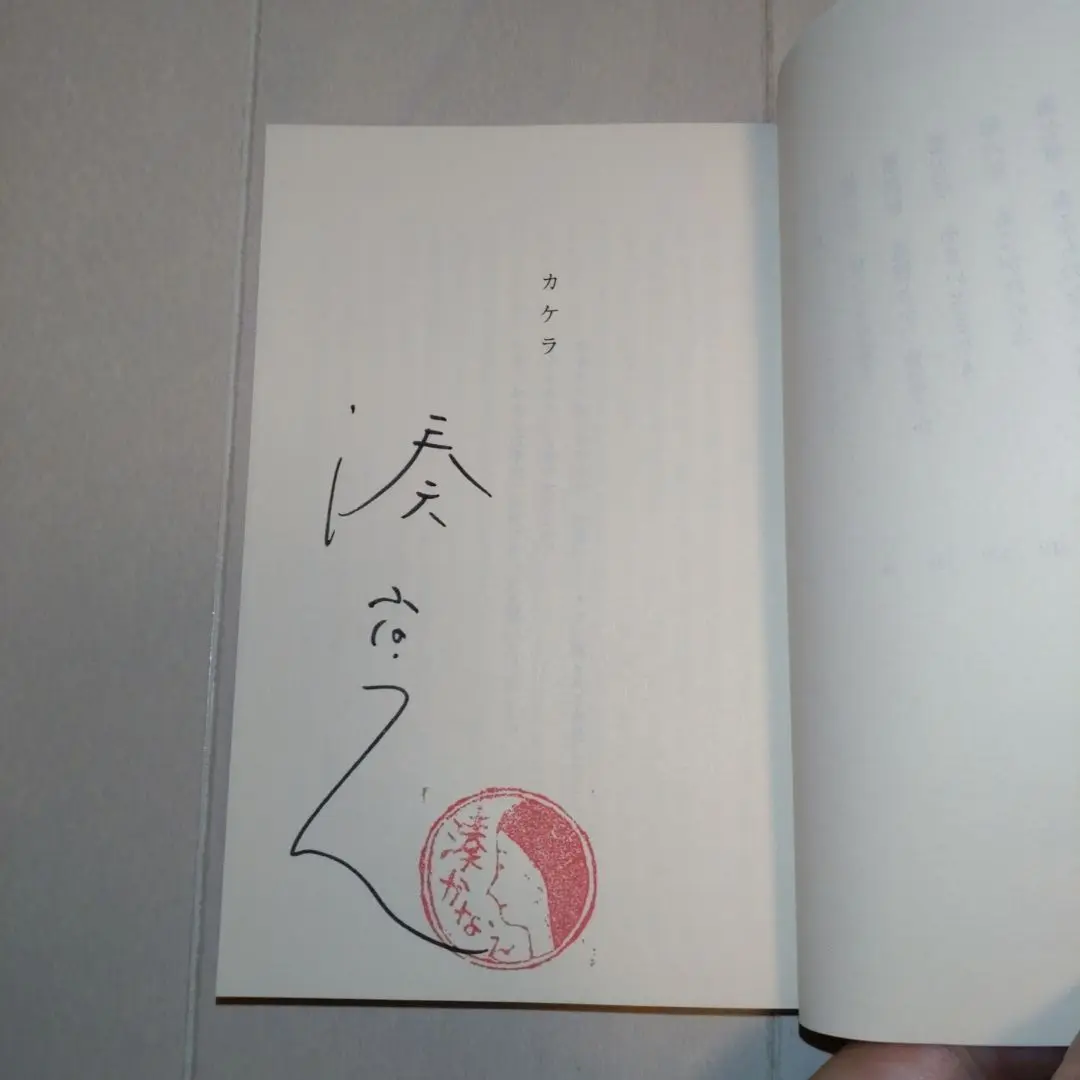 カケラ
湊かなえ
湊かなえ